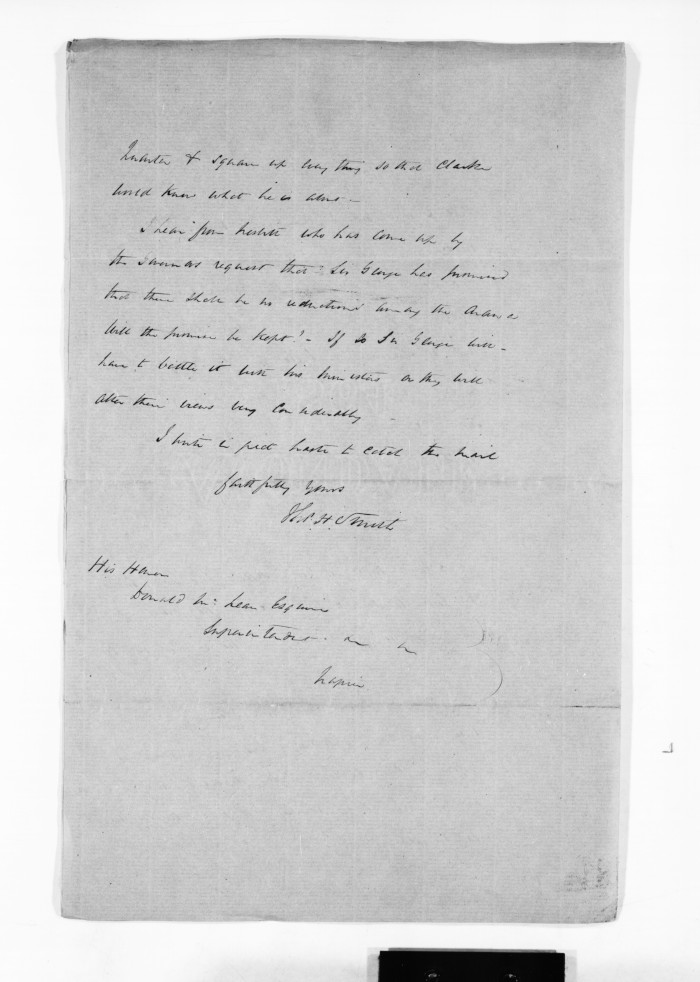 Quarter & square up every thing so that Clarke
would know what he is about –
I hear from Nesbitt who has come up by
the Governors request that Sir George has promised
that there shall be no reductions among the Arawa
Will the promise be kept! – If so Sir George will
have to battle it with his Ministers or they will
alter their views very considerably –
I write in great haste to catch the mail
faithfully yours
H. Smith
His Honor
Donald McLean Esquire
Superintendent
Napier